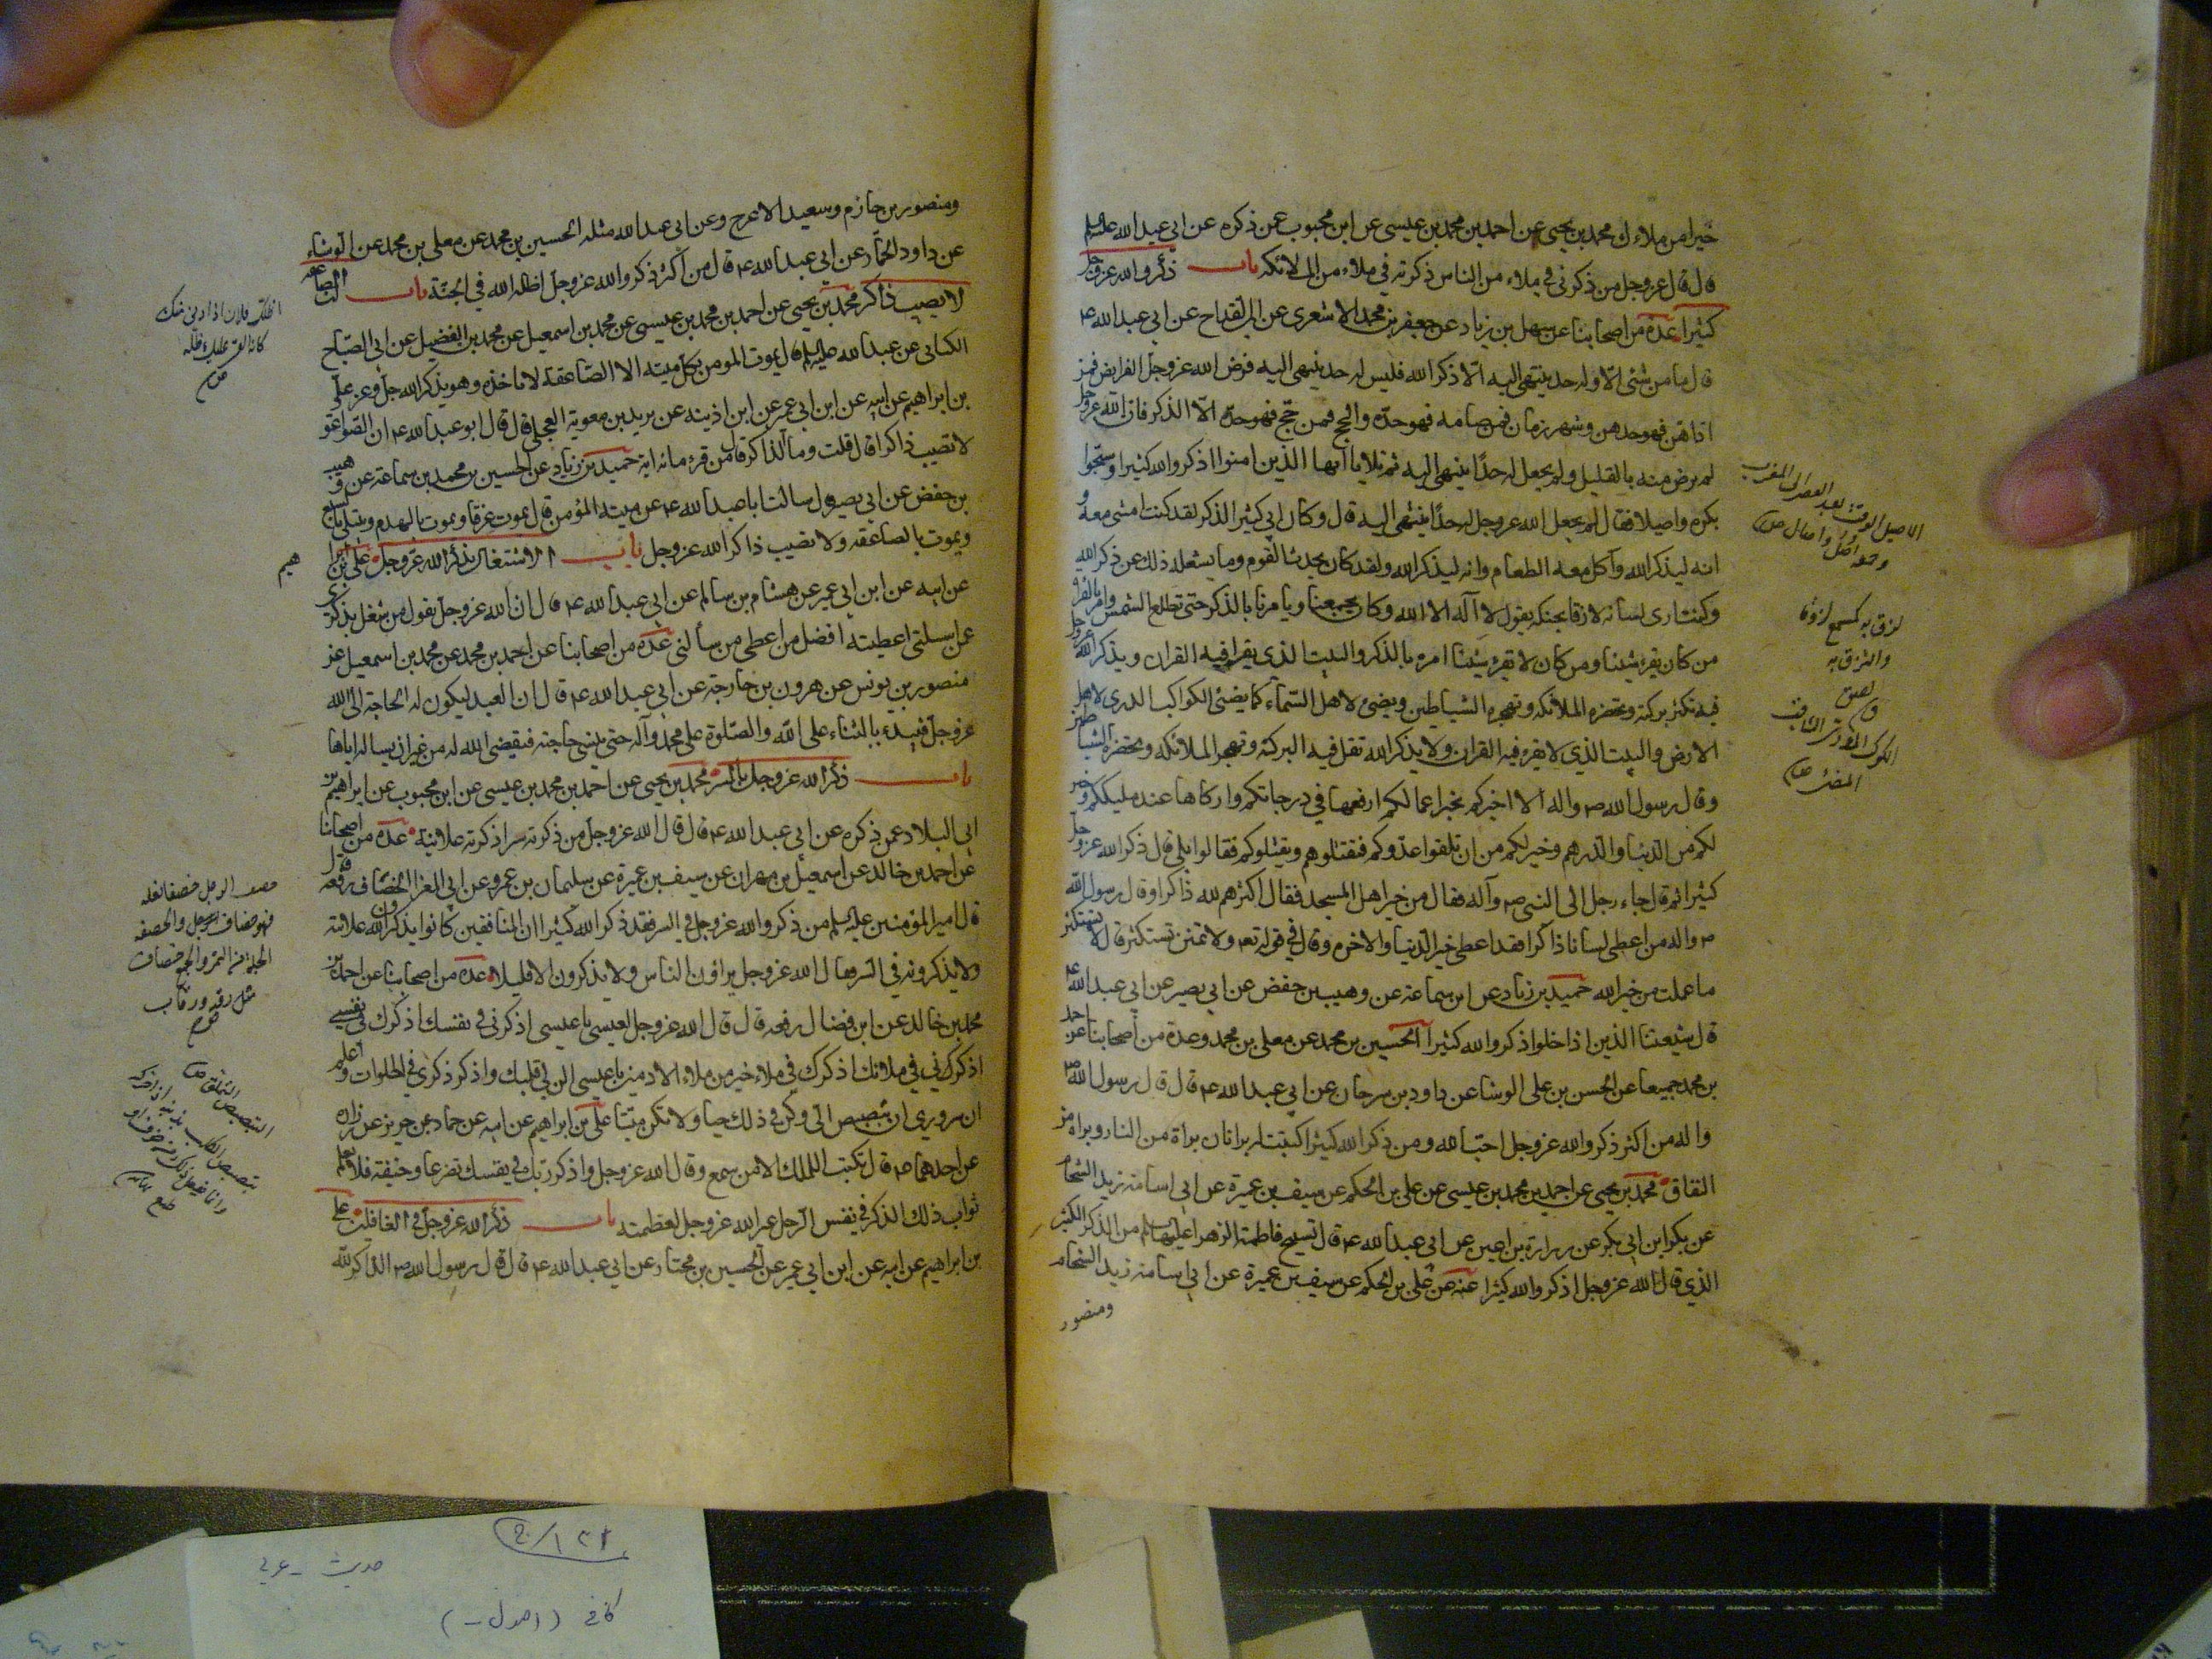 خيرا من ملاءك محمد بن يحيى عن احمد بن محمد بن عيسى عن ابن محبوب عمن ذكره عن ابى عبد الله عليه السلم
قال قال عز وجل من ذكرنى فى ملاء من الناس ذكرته فى ملاء من الملائكه باب ذكر الله عز وجل
كثيرا عدة من اصحابنا عن سهل بن زياد عن جعفر بن محمد الاشعرى عن ابن القداح عن ابى عبد الله ع
قال ما من شئ الا وله حد ينتهى اليه الا ذكر الله فليس له حد ينتهى اليه فرض الله عز وجل الفرايض فمن
اداهن فهو حدهن وشهر رمضان فمن صامه فهو حده والحج فمن حج فهو حده الا الذكر فان الله عز وجل
لم يرض منه بالقليل ولم يجعل له حدا ينتهى اليه ثم تلا يا ايها الذين امنوا اذكروا الله كثيرا وسبحوا
بكرة واصيلا فقال لم يجعل الله عز وجل له حدا ينتهى اليه قال وكان ابى كثير الذكر لقد كنت امشى معه و
انه ليذكر الله وآكل معه الطعام وانه ليذكر الله ولقد كان يحدث القوم وما يشغله ذلك عن ذكر الله
وكنت ارى لسانه لازقا بحنكه يقول لا آله الا الله وكان يجمعنا ويأمرنا بالذكر حتى تطلع الشمس ويامر بالقراة
من كان يقرء شيئا ومن كان لا يقرء شيئا امره بالذكر والبيت الذى يقرا فيه القران ويذكر الله عز وجل
فيه تكثر بركته وتحضره الملائكه وتهجره الشياطين ويضئ لاهل السماء كما يضئ الكواكب الدرى لاهل
الارض والبيت الذى لا يقرء فيه القران ولا يذكر الله تقل فيه البركة وتهجر الملائكه ويحضره الشياطين
وقال رسول الله ص واله الا اخبركم بخير اعمالكم ارفعها فى درجاتكم وازكاها عند مليككم وخير
لكم من الدينار والدرهم وخير لكم من ان تلقوا عدوكم فتقتلوهم ويقتلوكم فقالوا بلى قال ذكر الله عز وجل
كثيرا ثم قال جاء رجل الى النبى ص وآله فقال من خير اهل المسجد فقال اكثرهم لله ذاكرا وقال رسول الله
ص واله من اعطى لسانا ذاكرا فقد اعطى خير الدنيا والاخرة وقال فى قوله تع ولا تمنن تستكثر قال لا تستكثر
ما عملت من خير لله حميد بن زياد عن ابن سماعة عن وهيب بن حفص عن ابى بصير عن ابى عبد الله ع
قال شيعتنا الذين اذا خلوا ذكروا الله كثيرا الحسين بن محمد عن معلى بن محمد وعدة من اصحابنا عن احمد
بن محمد جميعا عن الحسن بن على الوشا عن داود بن سرحان عن ابى عبد الله ع قال قال رسول الله ص
واله من اكثر ذكر الله عز وجل احبه الله ومن ذكر الله كثيرا كتبت له براتان براة من النار وبراة من
النفاق محمد بن يحيى عن احمد بن محمد بن عيسى عن على بن الحكم عن سيف بن عميرة عن ابى اسامة زيد الشحام
عن بكر ابن ابى بكر عن زرارة بن اعين عن ابى عبد الله ع قال تسبيح فاطمة الزهراء عليها السلم من الذكر الكثير
الذى قال الله عز وجل اذكروا الله كثيرا عنه عن على بن الحكم عن سيف بن عميرة عن ابى اسامة زيد الشحام
ومنصور
الاصيل الوقت بعد العصر الى المغرب
وجمعه اصل واصال ص
لزق به كسمع لزوقا
والتزق به
لصق
ق
الكوكب الدرى الثاقب
المضئ ص
ومنصور بن حازم وسعيد الاعرج وعن ابى عبد الله مثله الحسين بن محمد عن معلى بن محمد عن الوشاء
عن داود الحمار عن ابى عبد الله ع قال من اكثر ذكر الله عز وجل اظله الله فى الجنة باب ان الصاعقة
لا يصيب ذاكر محمد بن يحيى عن احمد بن محمد بن عيسى عن محمد بن اسمعيل عن محمد بن الفضيل عن ابى الصباح
الكنانى عن عبد الله عليه السلم قال يموت المومن بكل ميتة الا الصاعقة لا تاخذه وهو يذكر الله جل وعز على
بن ابراهيم عن ابيه عن ابن ابى عمير عن ابن اذينه عن بريد بن معوية العجلى قال قال ابو عبد الله ع ان الصواعق
لا تصيب ذاكرا قال قلت وما الذاكر قال من قرء مائة اية حميد بن زياد عن الحسين بن محمد بن سماعة عن وهيب
بن حفص عن ابى بصير قال سالت ابا عبد الله ع عن ميتة المؤمن قال يموت غرقا ويموت بالهدم ويبتلى بالسبع
ويموت بالصاعقه ولا تصيب ذاكر الله عز وجل باب الاشتغال بذكر الله عز وجل على بن ابرا
هيم
عن ابيه عن ابن ابى عمير عن هشام بن سالم عن ابى عبد الله ع قال ان الله عز وجل يقول من شغل بذكرى
عن مسلتى اعطيته افضل من اعطى من سألنى عدة من اصحابنا عن احمد بن محمد عن محمد بن اسمعيل عن
منصور بن يونس عن هرون بن خارجة عن ابى عبد الله ع قال ان العبد ليكون له الحاجة الى الله
عز وجل فيبدء بالثناء على الله والصلوة على محمد وآله حتى ينسى حاجته فيقضى الله له من غير ان يساله اياها
باب ذكر الله عز وجل بالسر محمد بن يحيى عن احمد بن محمد بن عيسى عن ابن محبوب عن ابراهيم بن
ابى البلاد عمن ذكره عن ابى عبد الله ع قال قال الله عز وجل من ذكرنى سرا ذكرته علانية عدة من اصحابنا
عن احمد بن خالد عن اسمعيل بن مهران عن سيف بن عميرة عن سليمان بن عمرو عن ابى المغرا الخصاف رفعه قال
قال امير المؤمنين عليه السلم من ذكر الله عز وجل فى السر فقد ذكر الله كثيرا ان المنافقين كانوا يذكرون الله علانية
ولا يذكرونه فى السر فقال الله عز وجل يراؤن الناس ولا يذكرون الا قليلا عدة من اصحابنا عن احمد بن
محمد بن خالد عن ابن فضال رفعه قال قال الله عز وجل لعيسى يا عيسى اذكرنى فى نفسك اذكرك فى نفسى
اذكرنى فى ملائك اذكرك فى ملاء خير من ملاء الادميين يا عيسى الن لى قلبك واذكر ذكرى فى الخلوات واعلم
ان سرورى ان تبصبص الى وكن فى ذلك حيا ولا تكن ميتا على بن ابراهيم عن ابيه عن حماد عن حريز عن زرارة
عن احدهما ص قال لا تكتب الملك الا من سمع وقال الله عز وجل واذكر ربك فى نفسك تضرعا وخيفة فلا يعلم
ثواب ذلك الذكر فى نفس الرجل غير الله عز وجل لعظمته باب ذكر الله عز وجل فى الغافلين على
بن ابراهيم عن ابيه عن ابن ابى عمير عن الحسين بن مختار عن ابى عبد الله ع قال قال رسول الله ص الذاكر لله
اظلك فلان اذا دنى منك
كانه القى عليك ظله
ص
فهو خصاف
مثل رقبه ورقاب
التبصبص التملق
١٢١/ج
حديث - عربى
كافى (اصول -)